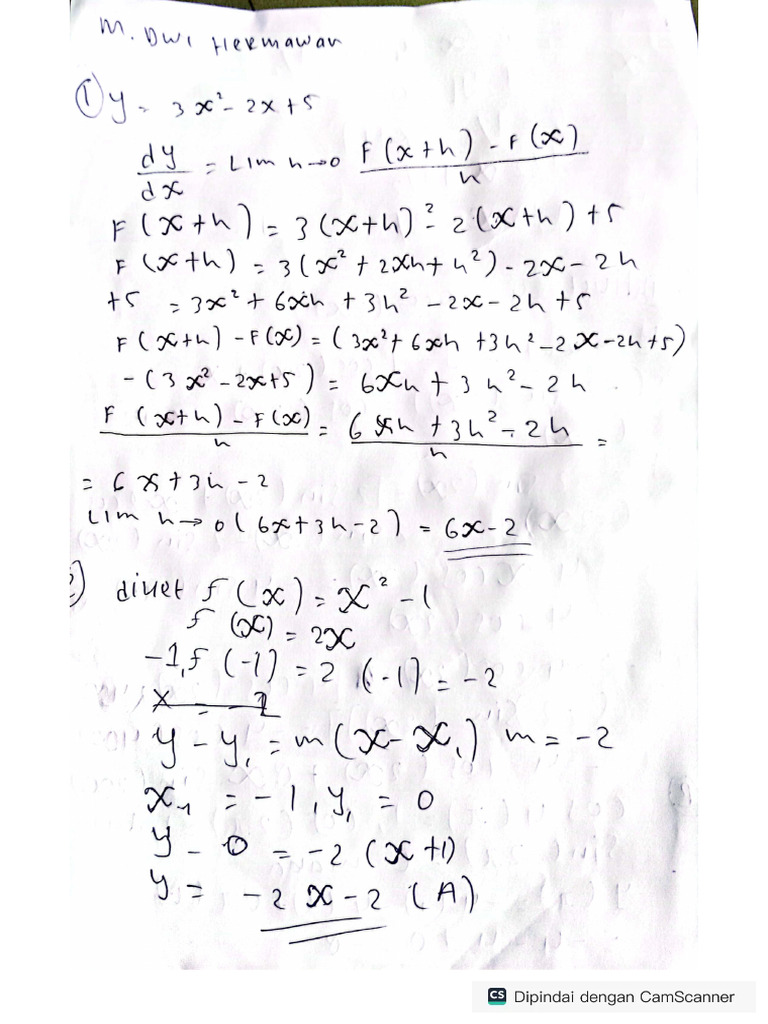 M. Dwi Hermawan
① y = 3x² - 2x + 5
dy/dx = Lim h→0 F(x+h) - F(x) / h
F(x+h) = 3(x+h)² - 2(x+h) + 5
F(x+h) = 3(x² + 2xh + h²) - 2x - 2h
+5 = 3x² + 6xh + 3h² - 2x - 2h + 5
F(x+h) - F(x) = (3x² + 6xh + 3h² - 2x - 2h + 5)
-(3x² - 2x + 5) = 6xh + 3h² - 2h
F(x+h) - F(x) / h = 6xh + 3h² - 2h / h =
= 6x + 3h - 2
Lim h→0 (6x + 3h - 2) = 6x - 2
2) f(x) = x² - 1
f(x) = 2x
-1, f(-1) = 2(-1) = -2
y - y₁ = m(x - x₁) m = -2
x₁ = -1, y₁ = 0
y - 0 = -2(x+1)
y = -2x - 2 (A)
CS Dipindai dengan CamScanner